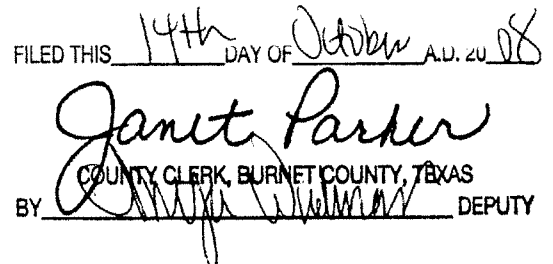 FILED THIS 14th DAY OF October A.D. 20 08
Janet Parker
COUNTY CLERK, BURNET COUNTY, TEXAS
BY DEPUTY